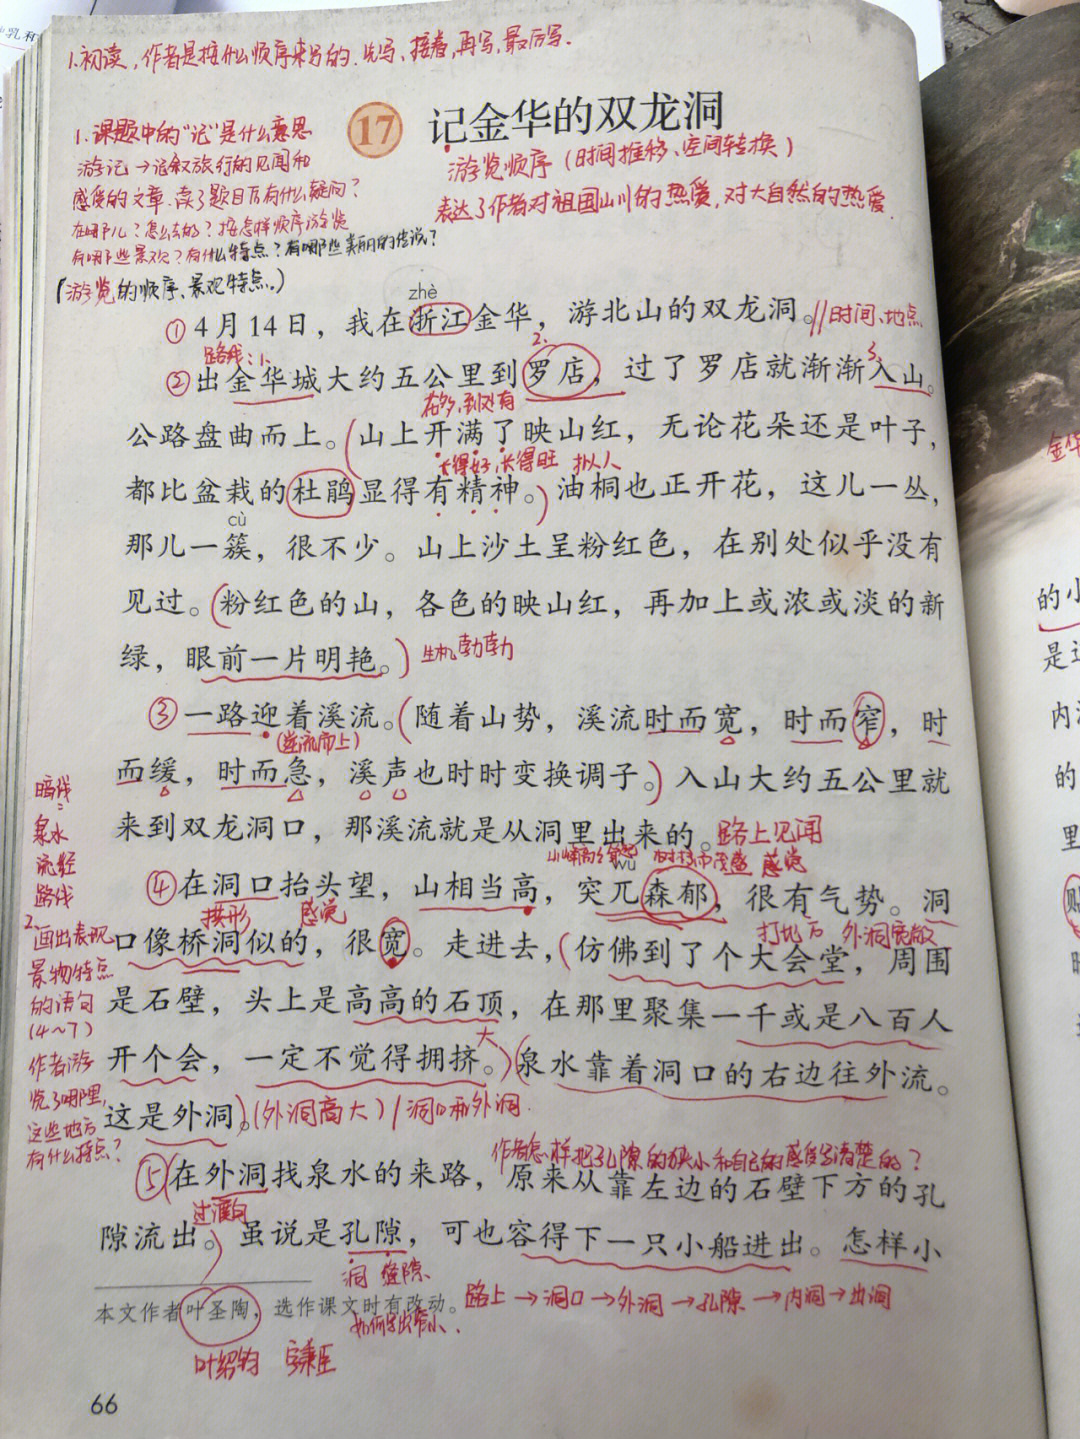 1.初读,作者是按什么顺序来写的.先写、接着,再写,最后写.
17 记金华的双龙洞
1.课题中的"记"是什么意思
游记→记叙旅行的见闻和
感受的文章.读了题目后有什么疑问?
在哪儿?怎么去的?按怎样顺序游览
有哪些景观?有什么特点?有哪些美丽的传说?
(游览的顺序、景观特点。)
游览顺序(时间推移、空间转换)
表达了作者对祖国山川的热爱,对大自然的热爱.
zhè
①4月14日，我在浙江金华，游北山的双龙洞。//时间、地点
路线:1、 2. 3.
②出金华城大约五公里到罗店，过了罗店就渐渐入山。
花多,到处有
公路盘曲而上。(山上开满了映山红，无论花朵还是叶子，
长得好,长得旺 拟人
都比盆栽的杜鹃显得有精神。)油桐也正开花，这儿一丛，
cù
那儿一簇，很不少。山上沙土呈粉红色，在别处似乎没有
见过。(粉红色的山，各色的映山红，再加上或浓或淡的新
绿，眼前一片明艳。)生机勃勃
③一路迎着溪流。(随着山势，溪流时而宽，时而窄，时
(逆流而上)
而缓，时而急，溪声也时时变换调子。)入山大约五公里就
来到双龙洞口，那溪流就是从洞里出来的。路上见闻
wù
感觉
④在洞口抬头望，山相当高，突兀森郁，很有气势。洞
拱形 感觉 打比方 外洞宽敞
口像桥洞似的，很宽。走进去，(仿佛到了个大会堂，周围
是石壁，头上是高高的石顶，在那里聚集一千或是八百人
大
开个会，一定不觉得拥挤。)(泉水靠着洞口的右边往外流。
这是外洞。)(外洞高大)/洞口和外洞.
暗线
:
泉水
流经
路线
2.画出表现
景物特点
的语句
(4~7)
作者游
览了哪里,
这些地方
有什么特点?
作者怎样把孔隙的狭小和自己的感受写清楚的?
⑤(在外洞找泉水的来路，原来从靠左边的石壁下方的孔
过渡句
隙流出。)虽说是孔隙，可也容得下一只小船进出。怎样小
洞 缝隙
路上→洞口→外洞→孔隙→内洞→出洞
本文作者叶圣陶，选作课文时有改动。
叶绍钧 字秉臣
66
金华
的小
是
内
的
里